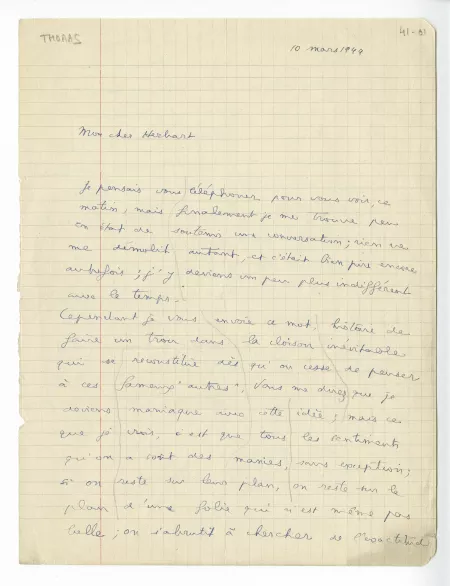 THOMAS
41-01
10 mars 1944
Mon cher Herbart
Je pensais vous téléphoner pour vous voir, ce
matin, mais finalement je me trouve peu
en état de soutenir une conversation ; rien ne
me démolit autant, et c'était bien pire encore
autrefois ; j'y deviens un peu plus indifférent
avec le temps.
Cependant je vous envoie ce mot, histoire de
faire un trou dans la cloison inévitable
qui se reconstitue dès qu'on cesse de penser
à ces fameux "autres". Vous me direz que je
deviens maniaque avec cette idée ; mais ce
que je crois, c'est que tous les sentiments
qu'on a sont des manies, sans exception ;
si on reste sur leur plan, on reste sur le
plan d'une folie qui n'est même pas
belle ; on s'abrutit à chercher de l'exactitude